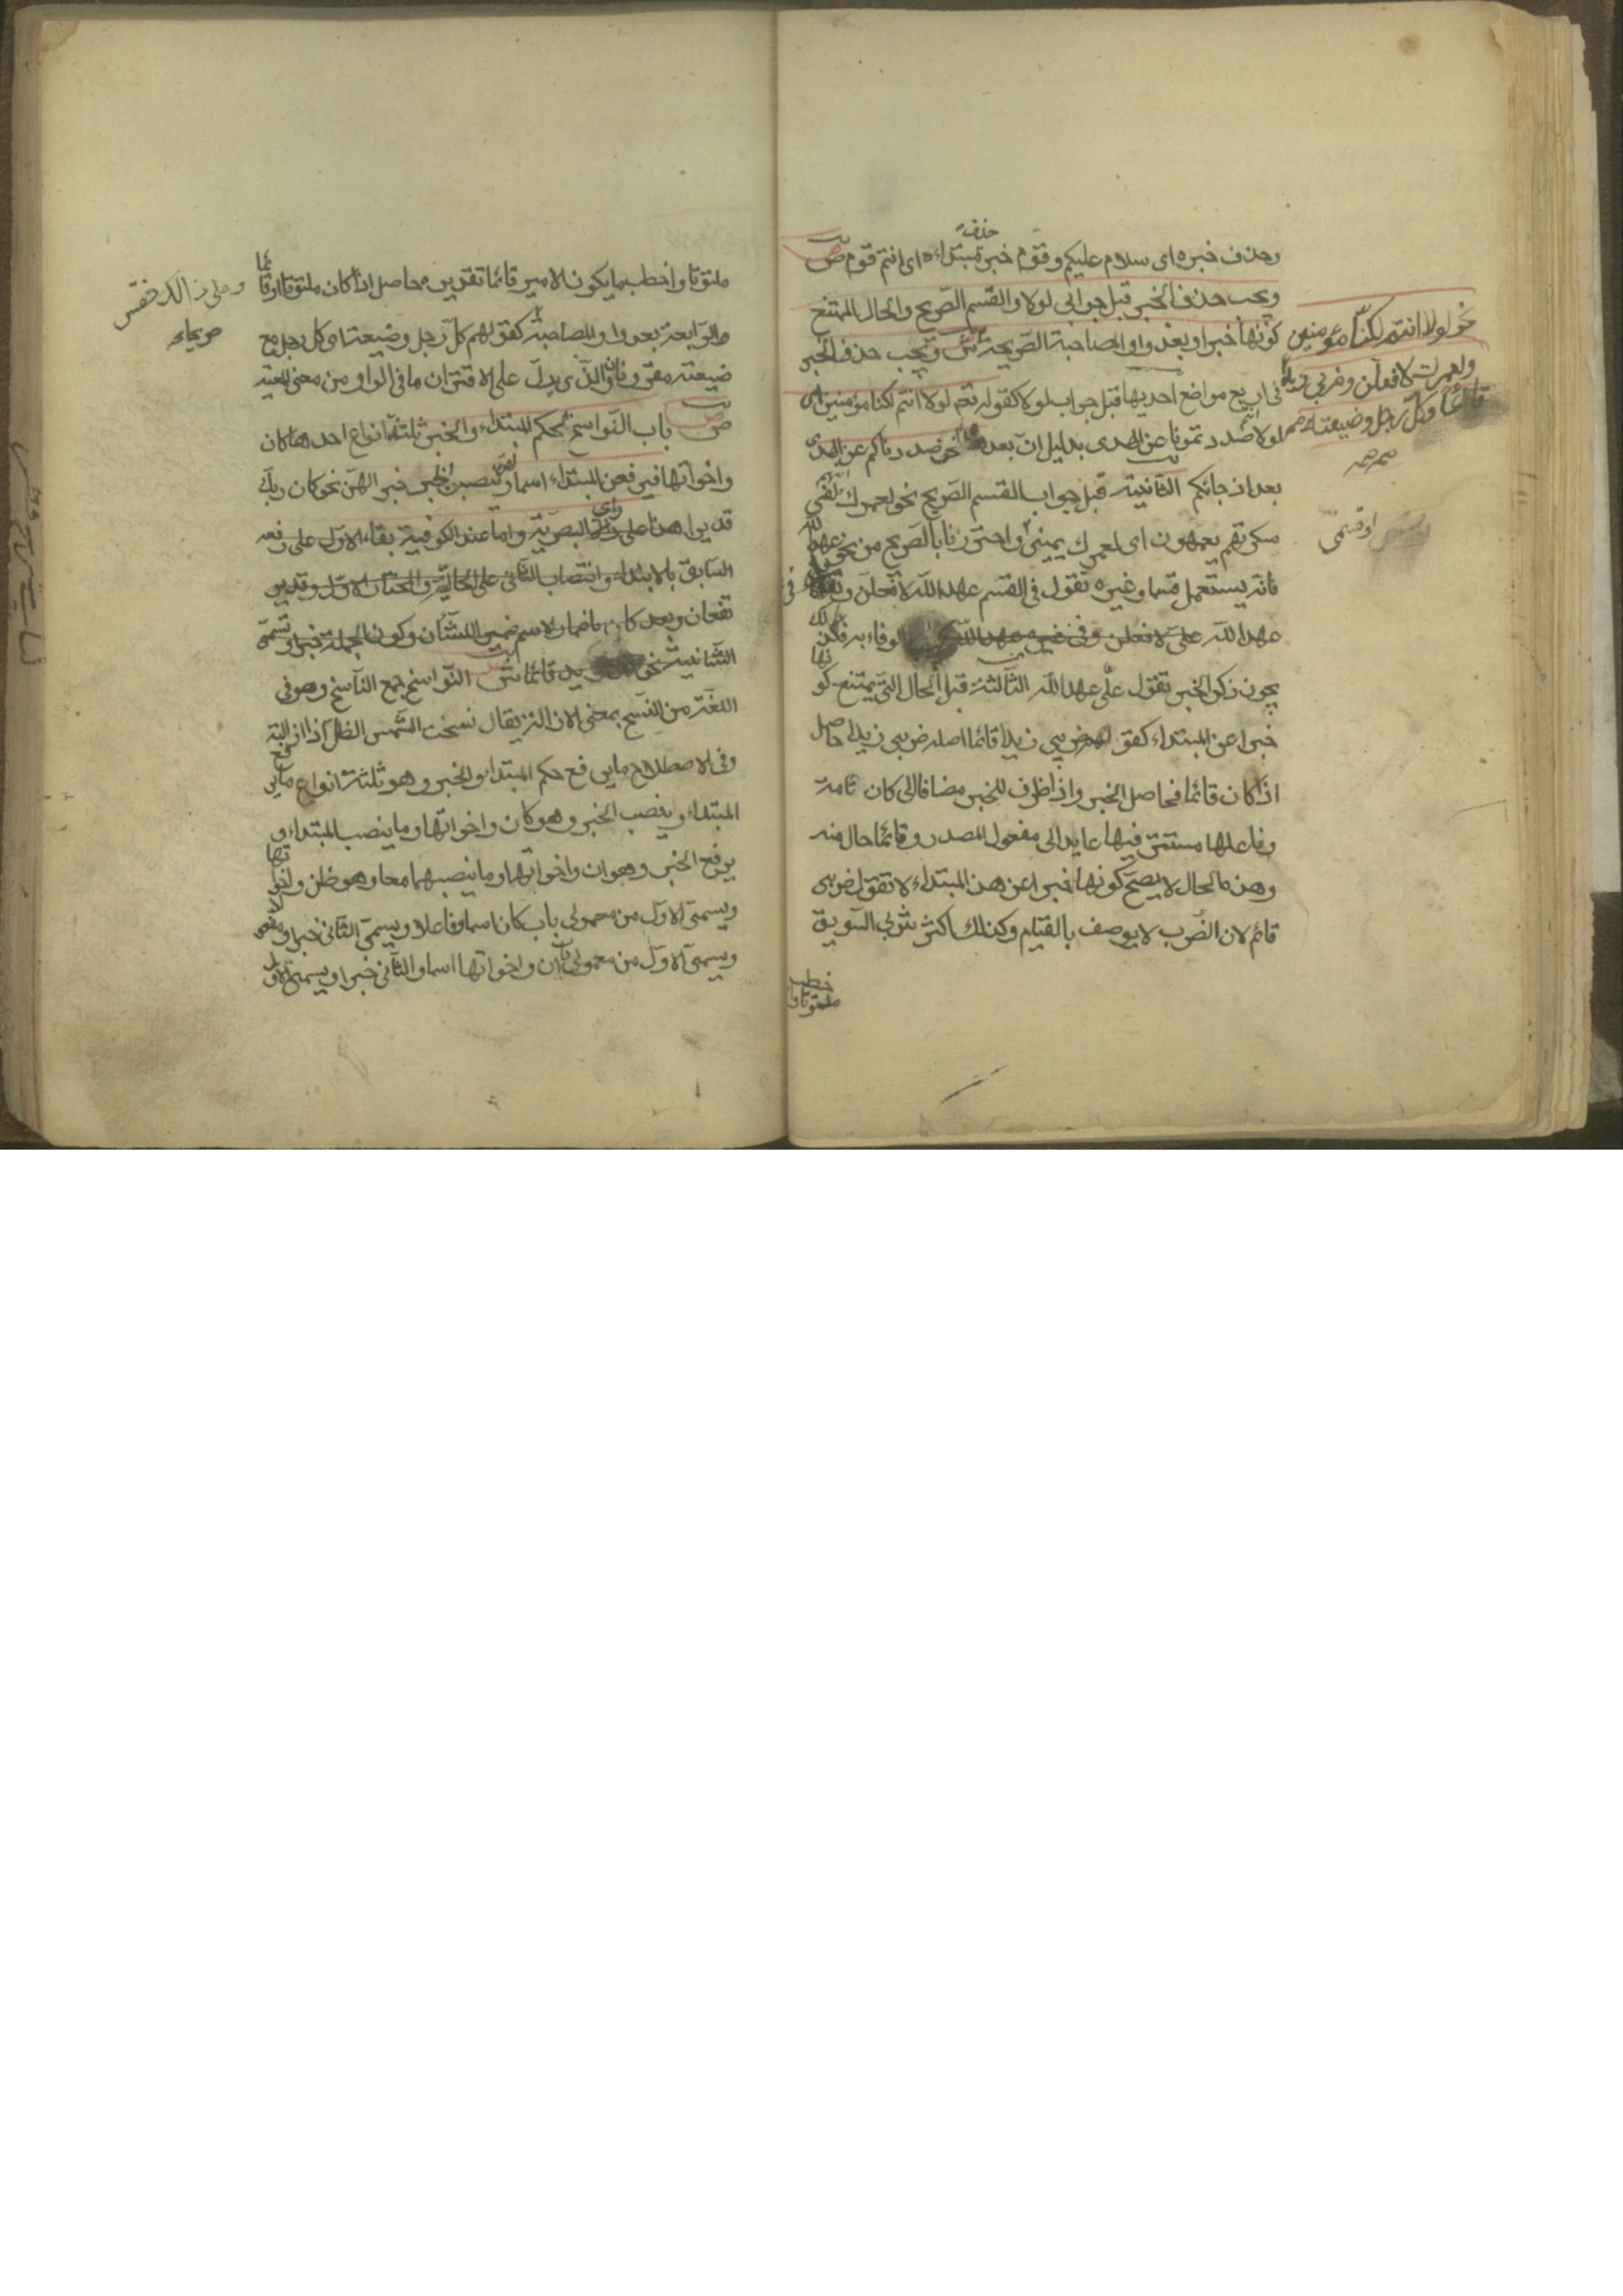 وحذف خبره اى سلام عليكم وقوم خبر مبتداء حذف اى انتم قوم ص
ويجب حذف الخبر قبل جوابى لولا والقسم الصريح والحال الممتنع
كونها خبرا وبعد واو المصاحبة الصريحة ش ويجب حذف الخبر
فى اربع مواضع احديها قبل جواب لولا كقوله تعم لولا انتم لكنا مؤمنين اى
لولا انتم صددتمونا عن الهدى بدليل ان بعده نحن صددناكم عن الهدى
بعد اذ جائكم الثانية قبل جواب القسم الصريح نحو لعمرك انهم لفى
سكرتهم يعمهون اى لعمرك يمينى واحترزنا بالصريح من نحو عهد الله
فانه يستعمل قسما وغيره تقول فى القسم عهد الله لافعلن وفى
عهد الله الوفاء به فلذلك
يجوز ذكر الخبر تقول على عهد الله الثالثة قبل الحال التى يمتنع كونها
خبرا عن المبتداء كقولهم ضربى زيدا قائما اصله ضربى زيدا حاصل
اذا كان قائما فحاصل الخبر واذا ظرف للخبر مضاف الى كان تامة
وفاعلها مستتر فيها عايد الى مفعول المصدر وقائما حال منه
وهذه الحال لا يصح كونها خبرا عن هذا المبتداء لا تقول ضربى
قائم لان الضرب لا يوصف بالقيام وكذلك اكثر شربى السويق
ملتوتا واخطب
نحو لولا انتم لكنا مؤمنين
ولعمرك لافعلن وضربى زيدا
قائما وكل رجل وضيعته
او قسمى
ملتوتا واخطب ما يكون الامير قائما تقديره حاصل اذا كان ملتوتا او قائما
والرابعة بعد واو المصاحبة كقولهم كل رجل وضيعته اى كل رجل مع
ضيعته مقرونان والذى يدل على الاقتران ما فى الواو من معنى المعية
ص باب النواسخ لحكم المبتداء والخبر ثلثة انواع احدها كان
واخواتها فيرفعن المبتداء اسما لهن وينصبن الخبر خبرا لهن نحو كان ربك
قديرا هذا على راى البصرية واما عند الكوفية بقاء الاول على رفعه
السابق بالابتداء وانتصاب الثانى على الحالية
باضمار الاسم ضمير الشان وكون الجملة خبرا وتسمى
الشانية نحو كان زيد قائما ش النواسخ جمع الناسخ وهو فى
اللغة من النسخ بمعنى الازالة يقال نسخت الشمس الظل اذا ازالته
وفى الاصطلاح ما يرفع حكم المبتداء والخبر وهو ثلثة انواع ما يرفع
المبتداء وينصب الخبر وهو كان واخواتها وما ينصب المبتداء و
يرفع الخبر وهو ان واخواتها وما ينصبهما معا وهو ظن واخواتها
ويسمى الاول من معمولى باب كان اسما وفاعلا ويسمى الثانى خبرا ومفعولا
ويسمى الاول من معمولى باب ان واخواتها اسما والثانى خبرا ويسمى الاول